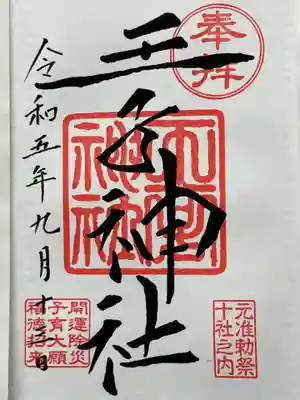 奉拝
王子神社
王子
神社
元准勅祭
十社之内
令和五年九月十三日
開運除災
子育大願
福徳招来